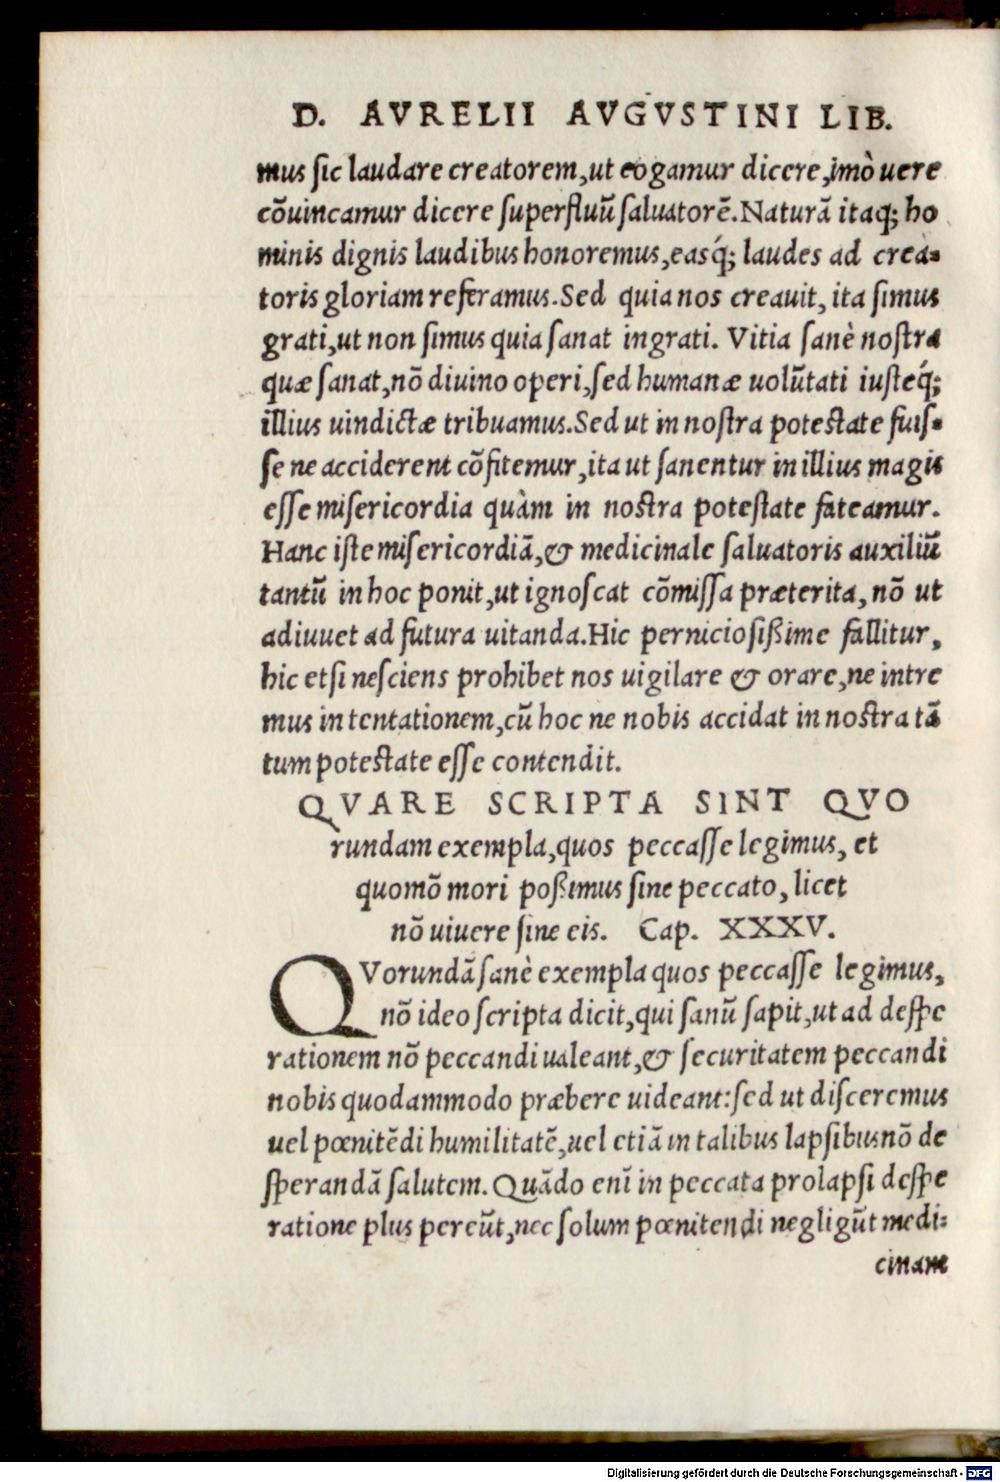 D. AVRELII AVGVSTINI LIB.
mus sic laudare creatorem,ut cogamur dicere,imò uere
cõuincamur dicere superfluũ saluatorẽ.Naturã itaq; ho
minis dignis laudibus honoremus,easq́; laudes ad crea-
toris gloriam referamus.Sed quia nos creauit, ita simus
grati,ut non simus quia sanat ingrati. Vitia sanè nostra
quæ sanat,nõ diuino operi,sed humanæ uolũtati iusteq́;
illius uindictæ tribuamus.Sed ut in nostra potestate fuis-
se ne acciderent cõfitemur,ita ut sanentur in illius magis
esse misericordia quàm in nostra potestate fateamur.
Hanc iste misericordiã,& medicinale saluatoris auxiliũ
tantũ in hoc ponit,ut ignoscat cõmissa præterita, nõ ut
adiuuet ad futura uitanda.Hic perniciosißime fallitur,
hic etsi nesciens prohibet nos uigilare & orare,ne intre
mus in tentationem,cũ hoc ne nobis accidat in nostra tã
tum potestate esse contendit.
QVARE SCRIPTA SINT QVO
rundam exempla,quos peccasse legimus, et
quomõ mori poßimus sine peccato, licet
nõ uiuere sine eis. Cap. XXXV.
QVorundã sanè exempla quos peccasse legimus,
nõ ideo scripta dicit,qui sanũ sapit,ut ad despe
rationem nõ peccandi ualeant,& securitatem peccandi
nobis quodammodo præbere uideant:sed ut disceremus
uel pœnitẽdi humilitatẽ,uel etiã in talibus lapsibus nõ de
sperandã salutem. Quãdo enĩ in peccata prolapsi despe
ratione plus pereũt,nec solum pœnitendi negligũt medi-
cinam
Digitalisierung gefördert durch die Deutsche Forschungsgemeinschaft - DFG